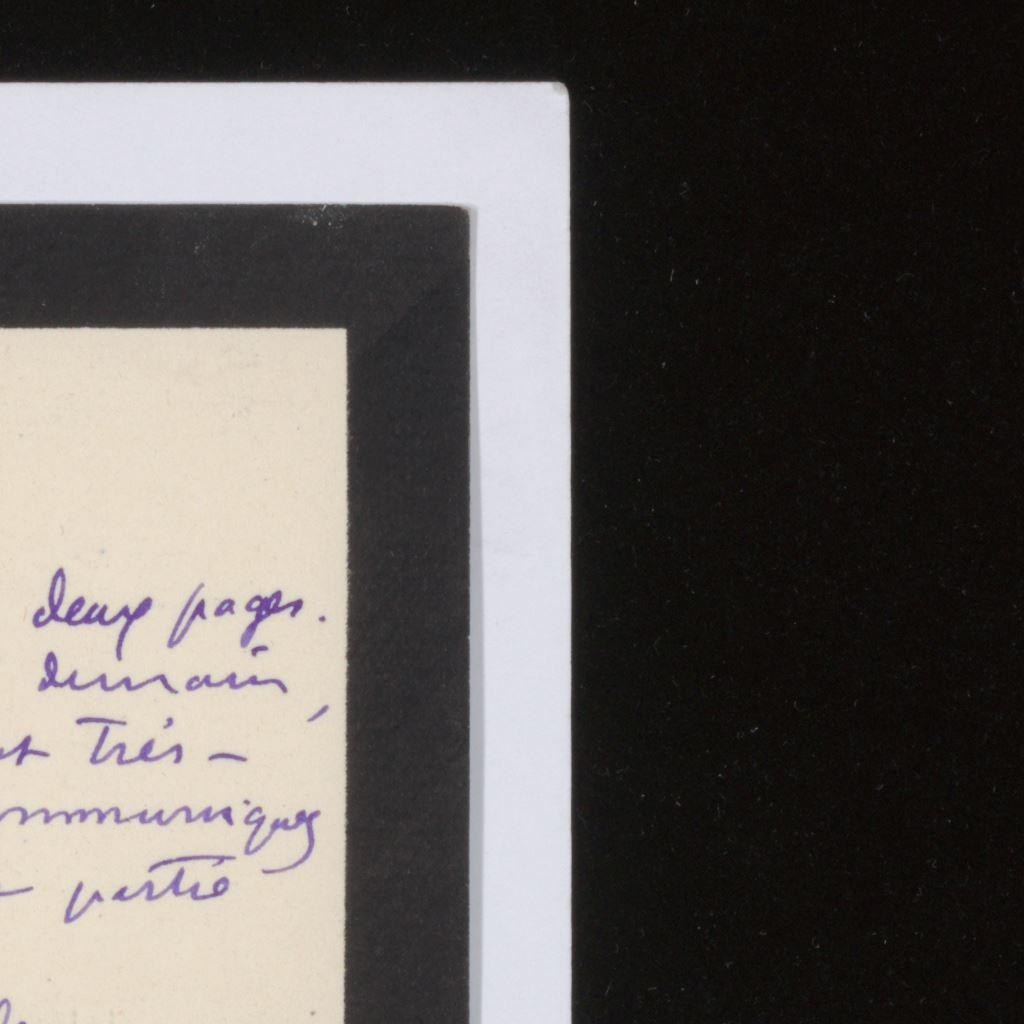 deux pages.
demain,
et très-
communiquez
partie